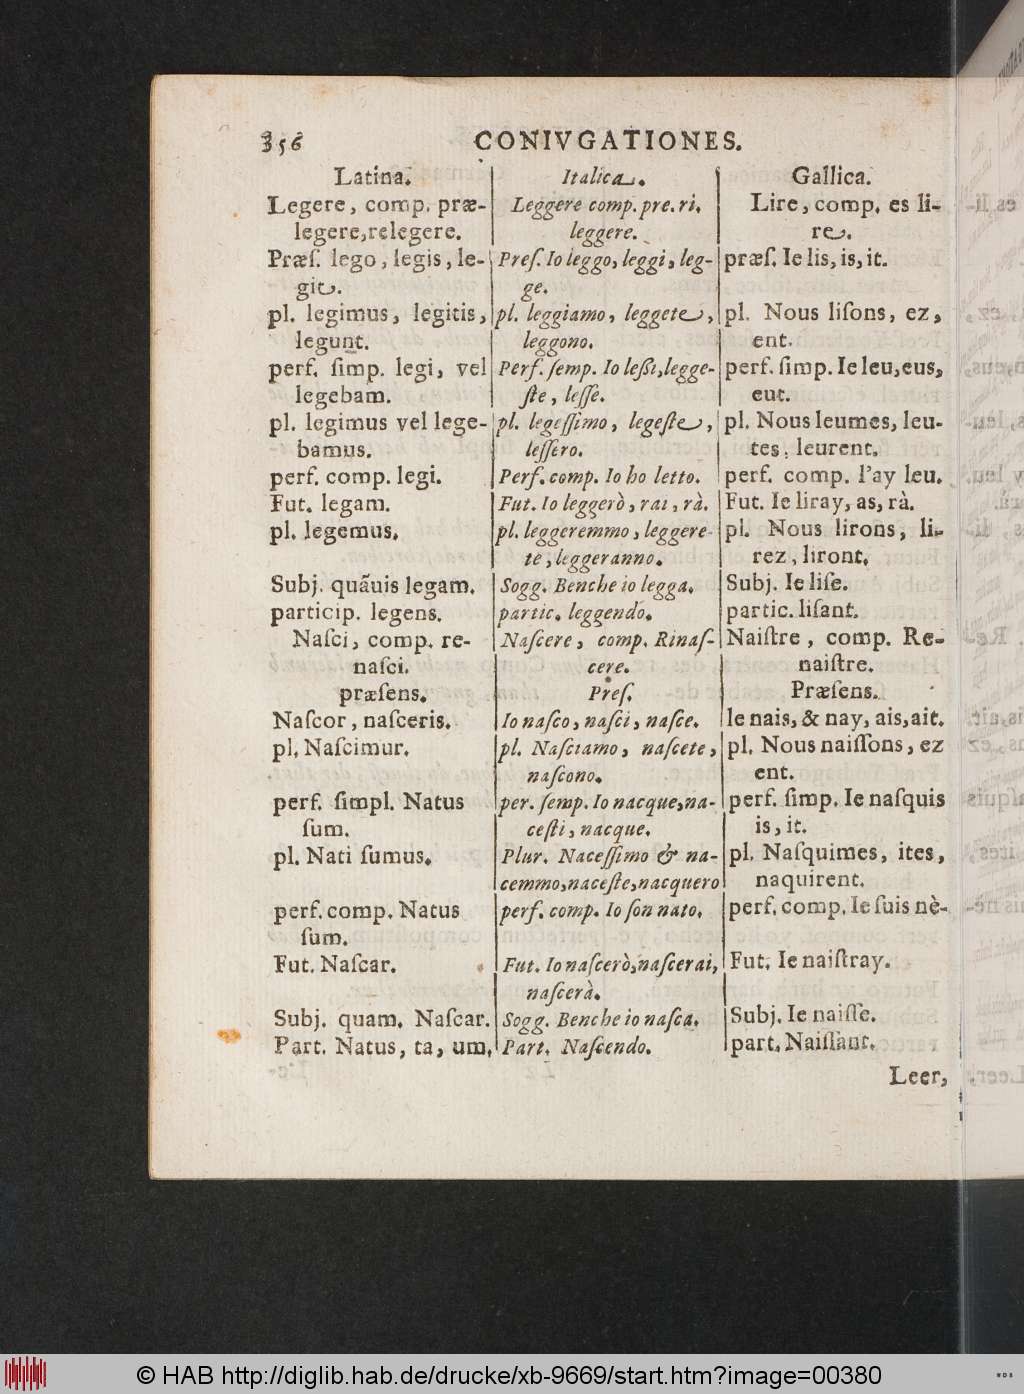 356 CONIVGATIONES.
Latina.
Legere, comp. præ-
legere, relegere.
Præſ. lego, legis, le-
git.
pl. legimus, legitis,
legunt.
perf. ſimp. legi, vel
legebam.
pl. legimus vel lege-
bamus.
perf. comp. legi.
Fut. legam.
pl. legemus.
Subj. quãuis legam.
particip. legens.
Naſci, comp. re-
naſci.
præſens.
Naſcor, naſceris.
pl. Naſcimur.
perf. ſimpl. Natus
ſum.
pl. Nati ſumus.
perf. comp. Natus
ſum.
Fut. Naſcar.
Subj. quam. Naſcar.
Part. Natus, ta, um.
Italica.
Leggere comp. pre. ri.
leggere.
Preſ. Io leggo, leggi, leg-
ge.
pl. leggiamo, leggete,
leggono.
Perf. ſemp. Io leßi, legge-
ſte, leſſe.
pl. legeſſimo, legeſte,
leſſero.
Perf. comp. Io ho letto.
Fut. Io leggerò, rai, rà.
pl. leggeremmo, leggere-
te, leggeranno.
Sogg. Benche io legga.
partic. leggendo.
Naſcere, comp. Rinaſ-
cere.
Preſ.
Io naſco, naſci, naſce.
pl. Naſciamo, naſcete,
naſcono.
per. ſemp. Io nacque, na-
ceſti, nacque.
Plur. Naceſſimo & na-
cemmo, naceſte, nacquero
perf. comp. Io ſon nato.
Fut. Io naſcerò, naſcerai,
naſcerà.
Sogg. Benche io naſca.
Part. Naſcendo.
Gallica.
Lire, comp. es li-
re.
præſ. Ie lis, is, it.
pl. Nous liſons, ez,
ent.
perf. ſimp. Ie leu, eus,
eut.
pl. Nous leumes, leu-
tes, leurent.
perf. comp. I'ay leu.
Fut. Ie liray, as, rà.
pl. Nous lirons, li-
rez, liront.
Subj. Ie liſe.
partic. liſant.
Naiſtre, comp. Re-
naiſtre.
Præſens.
Ie nais, & nay, ais, ait.
pl. Nous naiſſons, ez
ent.
perf. ſimp. Ie naſquis
is, it.
pl. Naſquimes, ites,
naquirent.
perf. comp. Ie ſuis nè-
Fut. Ie naiſtray.
Subj. Ie naiſſe.
part. Naiſſant.
Leer,
© HAB http://diglib.hab.de/drucke/xb-9669/start.htm?image=00380